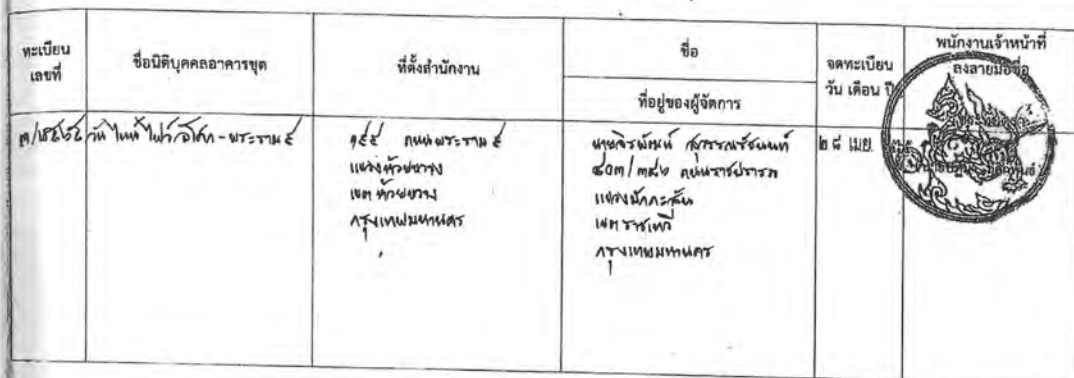 ทะเบียน
เลขที่
ชื่อนิติบุคคลอาคารชุด
ที่ตั้งสำนักงาน
ชื่อ
ที่อยู่ของผู้จัดการ
จดทะเบียน
วัน เดือน ปี
พนักงานเจ้าหน้าที่
ลงลายมือชื่อ
วัน ไนน์ ไฟว์ อโศก - พระราม ๙
๑๙๕ ถนนพระราม ๙
แขวงห้วยขวาง
เขตห้วยขวาง
กรุงเทพมหานคร
ถนนราชปรารภ
แขวงมักกะสัน
เขตราชเทวี
กรุงเทพมหานคร
๒๘ เมย.